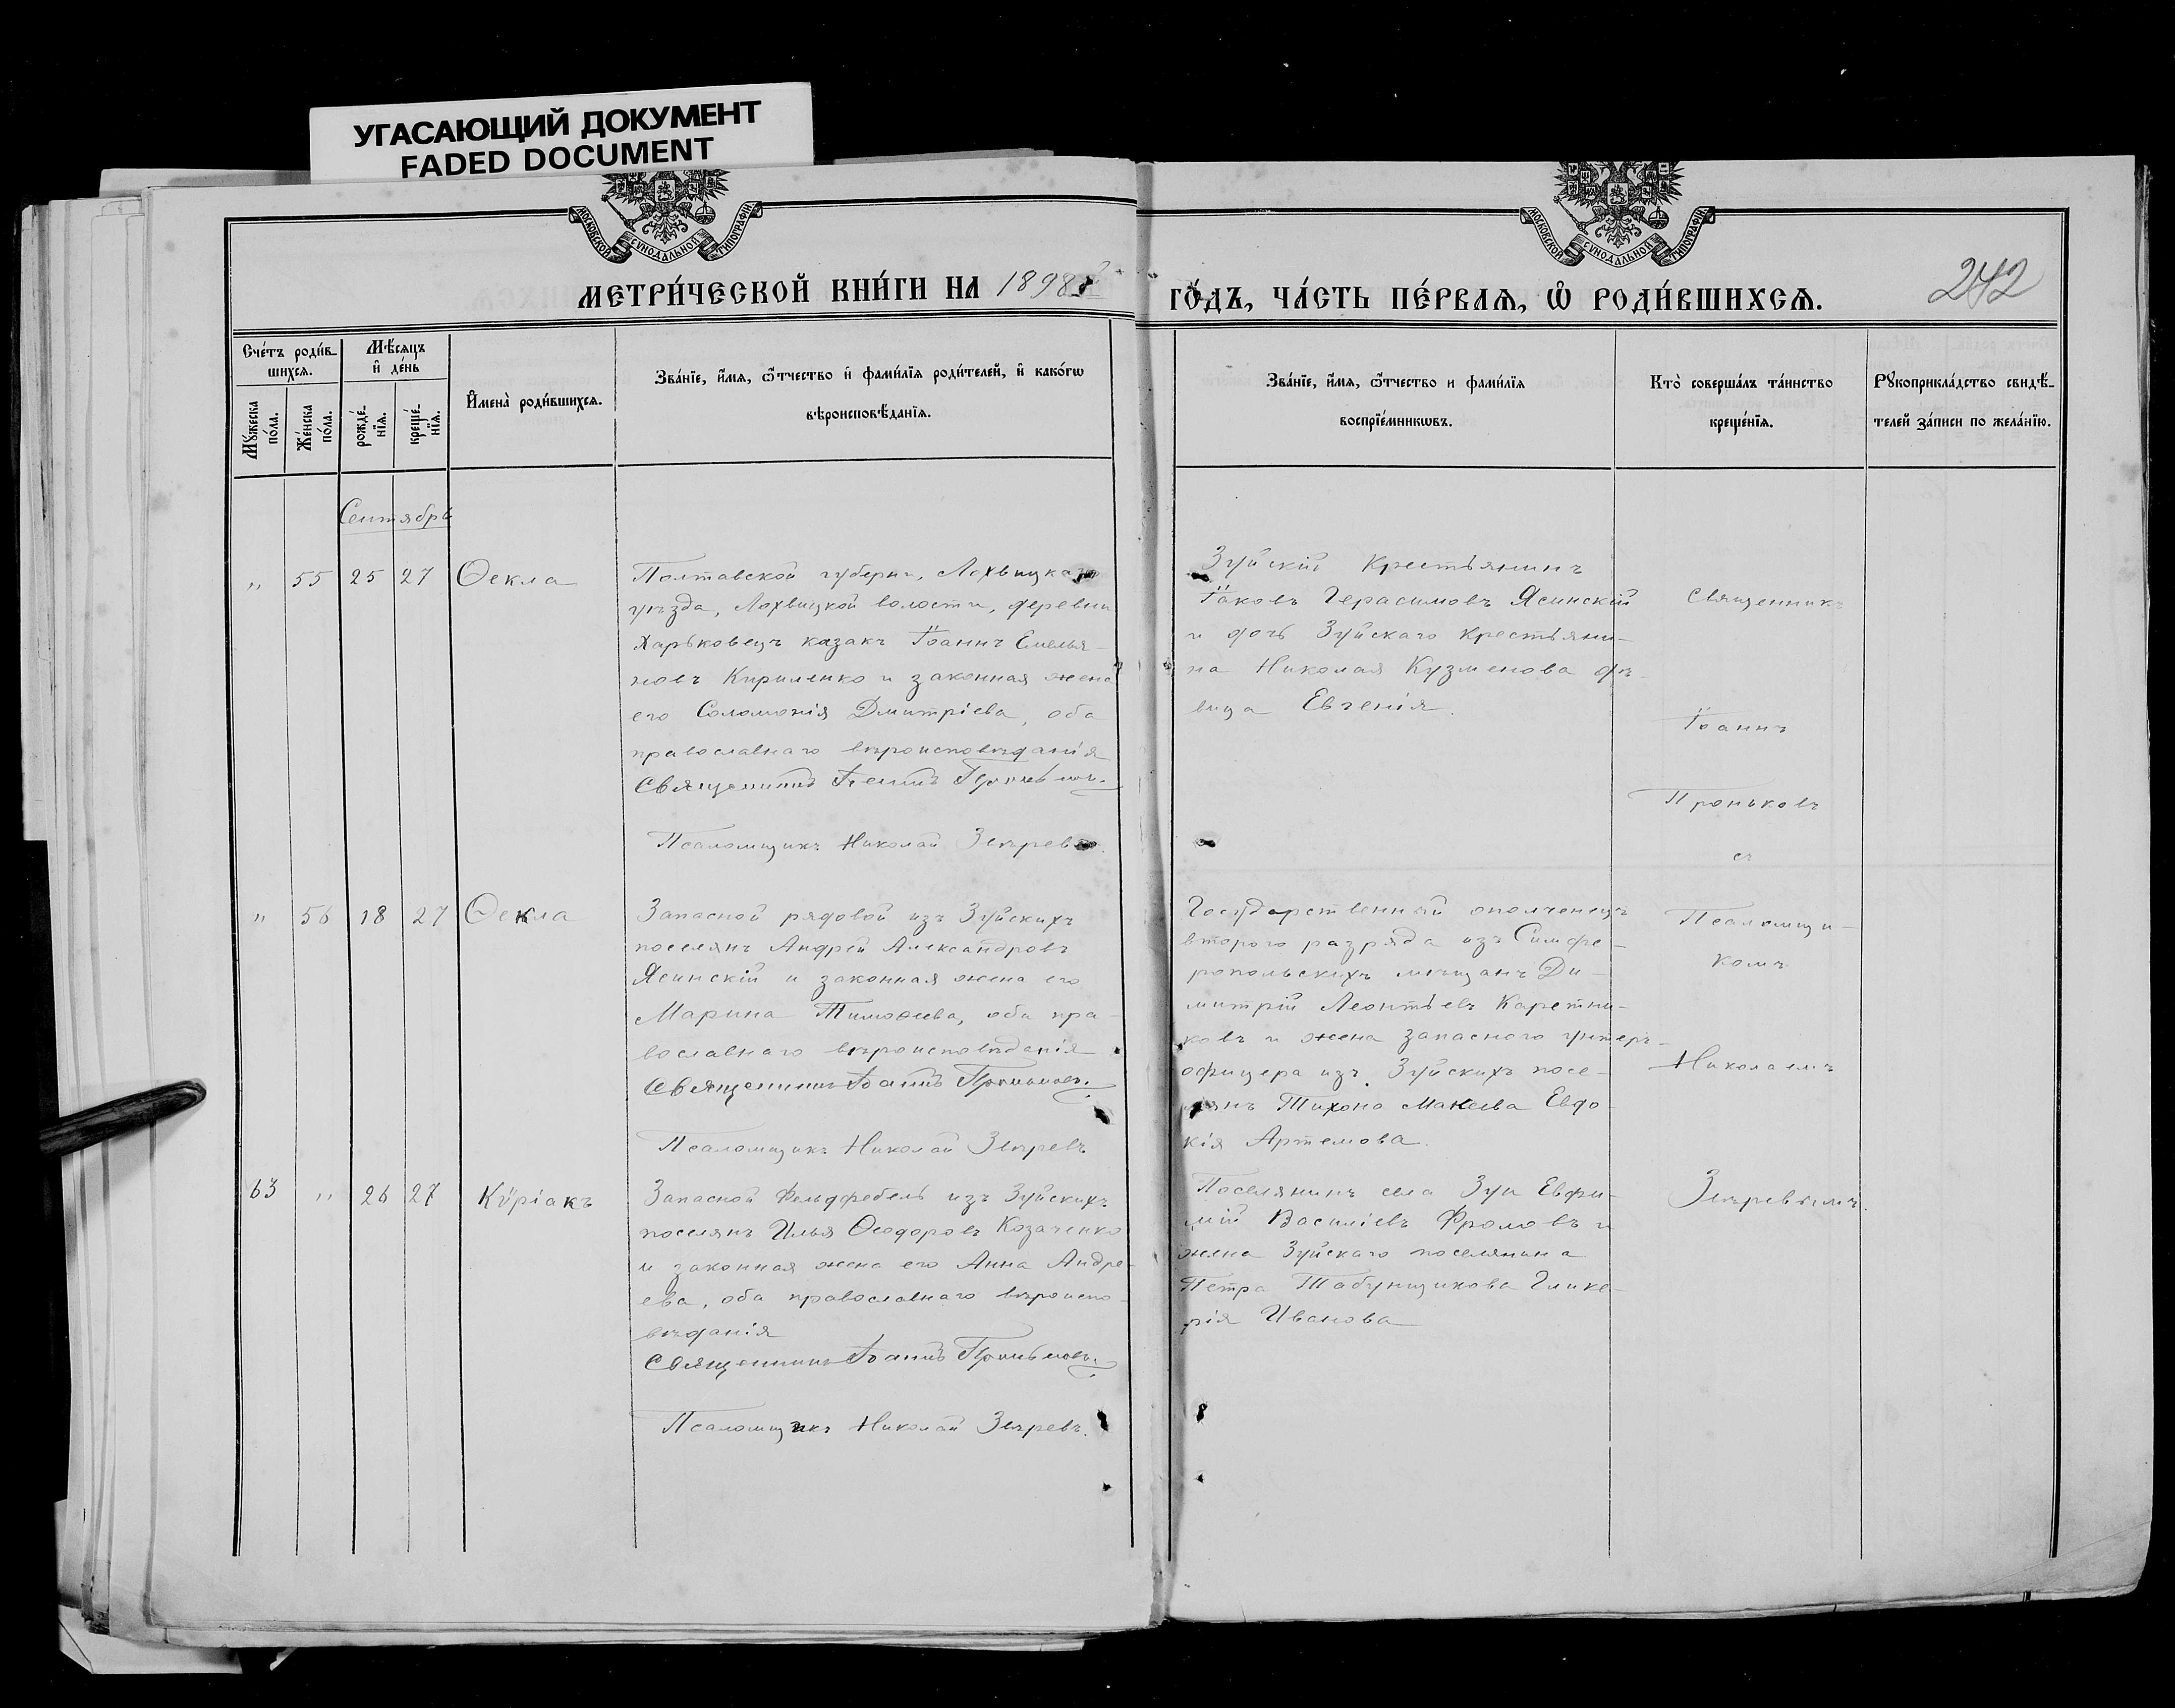 УГАСАЮЩИЙ ДОКУМЕНТ
FADED DOCUMENT
МОСКОВСКОЙ СѴНОДАЛЬНОЙ ТИПОГРАФІИ
МОСКОВСКОЙ СѴНОДАЛЬНОЙ ТИПОГРАФІИ
МЕТРИ́ЧЕСКОЙ КНИ́ГИ НА 1898
ГО́ДЪ, ЧА́СТЬ ПЕ́РВАѦ, Ѽ РОДИ́ВШИХСѦ.
242
Сче́тъ роди́в-
шихсѧ.
Мѣ́сѧцъ
и҆ де́нь
Мꙋ́жеска
по́ла.
Же́нска
по́ла.
рожде́-
нїѧ.
креще́-
нїѧ.
И҆мена̀ роди́вшихсѧ.
Зва́нїе, и҆́мѧ, ѻ҆́тчество и҆ фами́лїѧ роди́телей, и҆ како́гѡ
вѣроисповѣ́данїѧ.
Зва́нїе, и҆́мѧ, ѻ҆́тчество и фами́лїѧ
воспрїе́мникѡвъ.
Кто̀ соверша́лъ та́инство
креще́нїѧ.
Рꙋкоприкла́дство свидѣ́-
телей за́писи по жела́нїю.
Сентябрь
" 55 25 27 Ѳекла
Полтавской губерніи, Лохвицкаго
уѣзда, Лохвицкой волости, деревни
Харьковецъ казакъ Іоаннъ Емелья-
новъ Кириленко и законная жена
его Соломонія Дмитріева, оба
православнаго вѣроисповѣданія
Священникъ Іоаннъ Проньковъ.
Псаломщикъ Николай Звѣревъ.
Зуйскій крестьянинъ
Іаковъ Герасимовъ Ясинскій
и дочь Зуйскаго крестьяни-
на Николая Кузменова дѣ-
вица Евгенія.
Священникъ
Іоаннъ
Проньковъ
съ
" 56 18 27 Ѳекла
Запасной рядовой изъ Зуйскихъ
поселянъ Андрей Александровъ
Ясинскій и законная жена его
Марина Тимоѳеева, оба пра-
вославнаго вѣроисповѣданія
Священникъ Іоаннъ Проньковъ.
Псаломщикъ Николай Звѣревъ
Государственный ополченецъ
второго разряда изъ Симфе-
ропольскихъ мѣщанъ Ди-
митрій Леонтьевъ Каретни-
ковъ и жена запасного унтеръ-
офицера изъ Зуйскихъ посе-
лянъ Тихона Макеева Евдо-
кія Артемова.
Псаломщи-
комъ
Николаемъ
Звѣревымъ.
63 " 26 27 Кѷріакъ
Запасной Фельдфебель изъ Зуйскихъ
поселянъ Илья Ѳеодоровъ Козаченко
и законная жена его Анна Андре-
ева, оба православнаго вѣроиспо-
вѣданія
Священникъ Іоаннъ Проньковъ.
Псаломщикъ Николай Звѣревъ.
Поселянинъ села Зуи Евфи-
мій Василіевъ Фроловъ и
жена Зуйскаго поселянина
Петра Табунщикова Глике-
рія Иванова